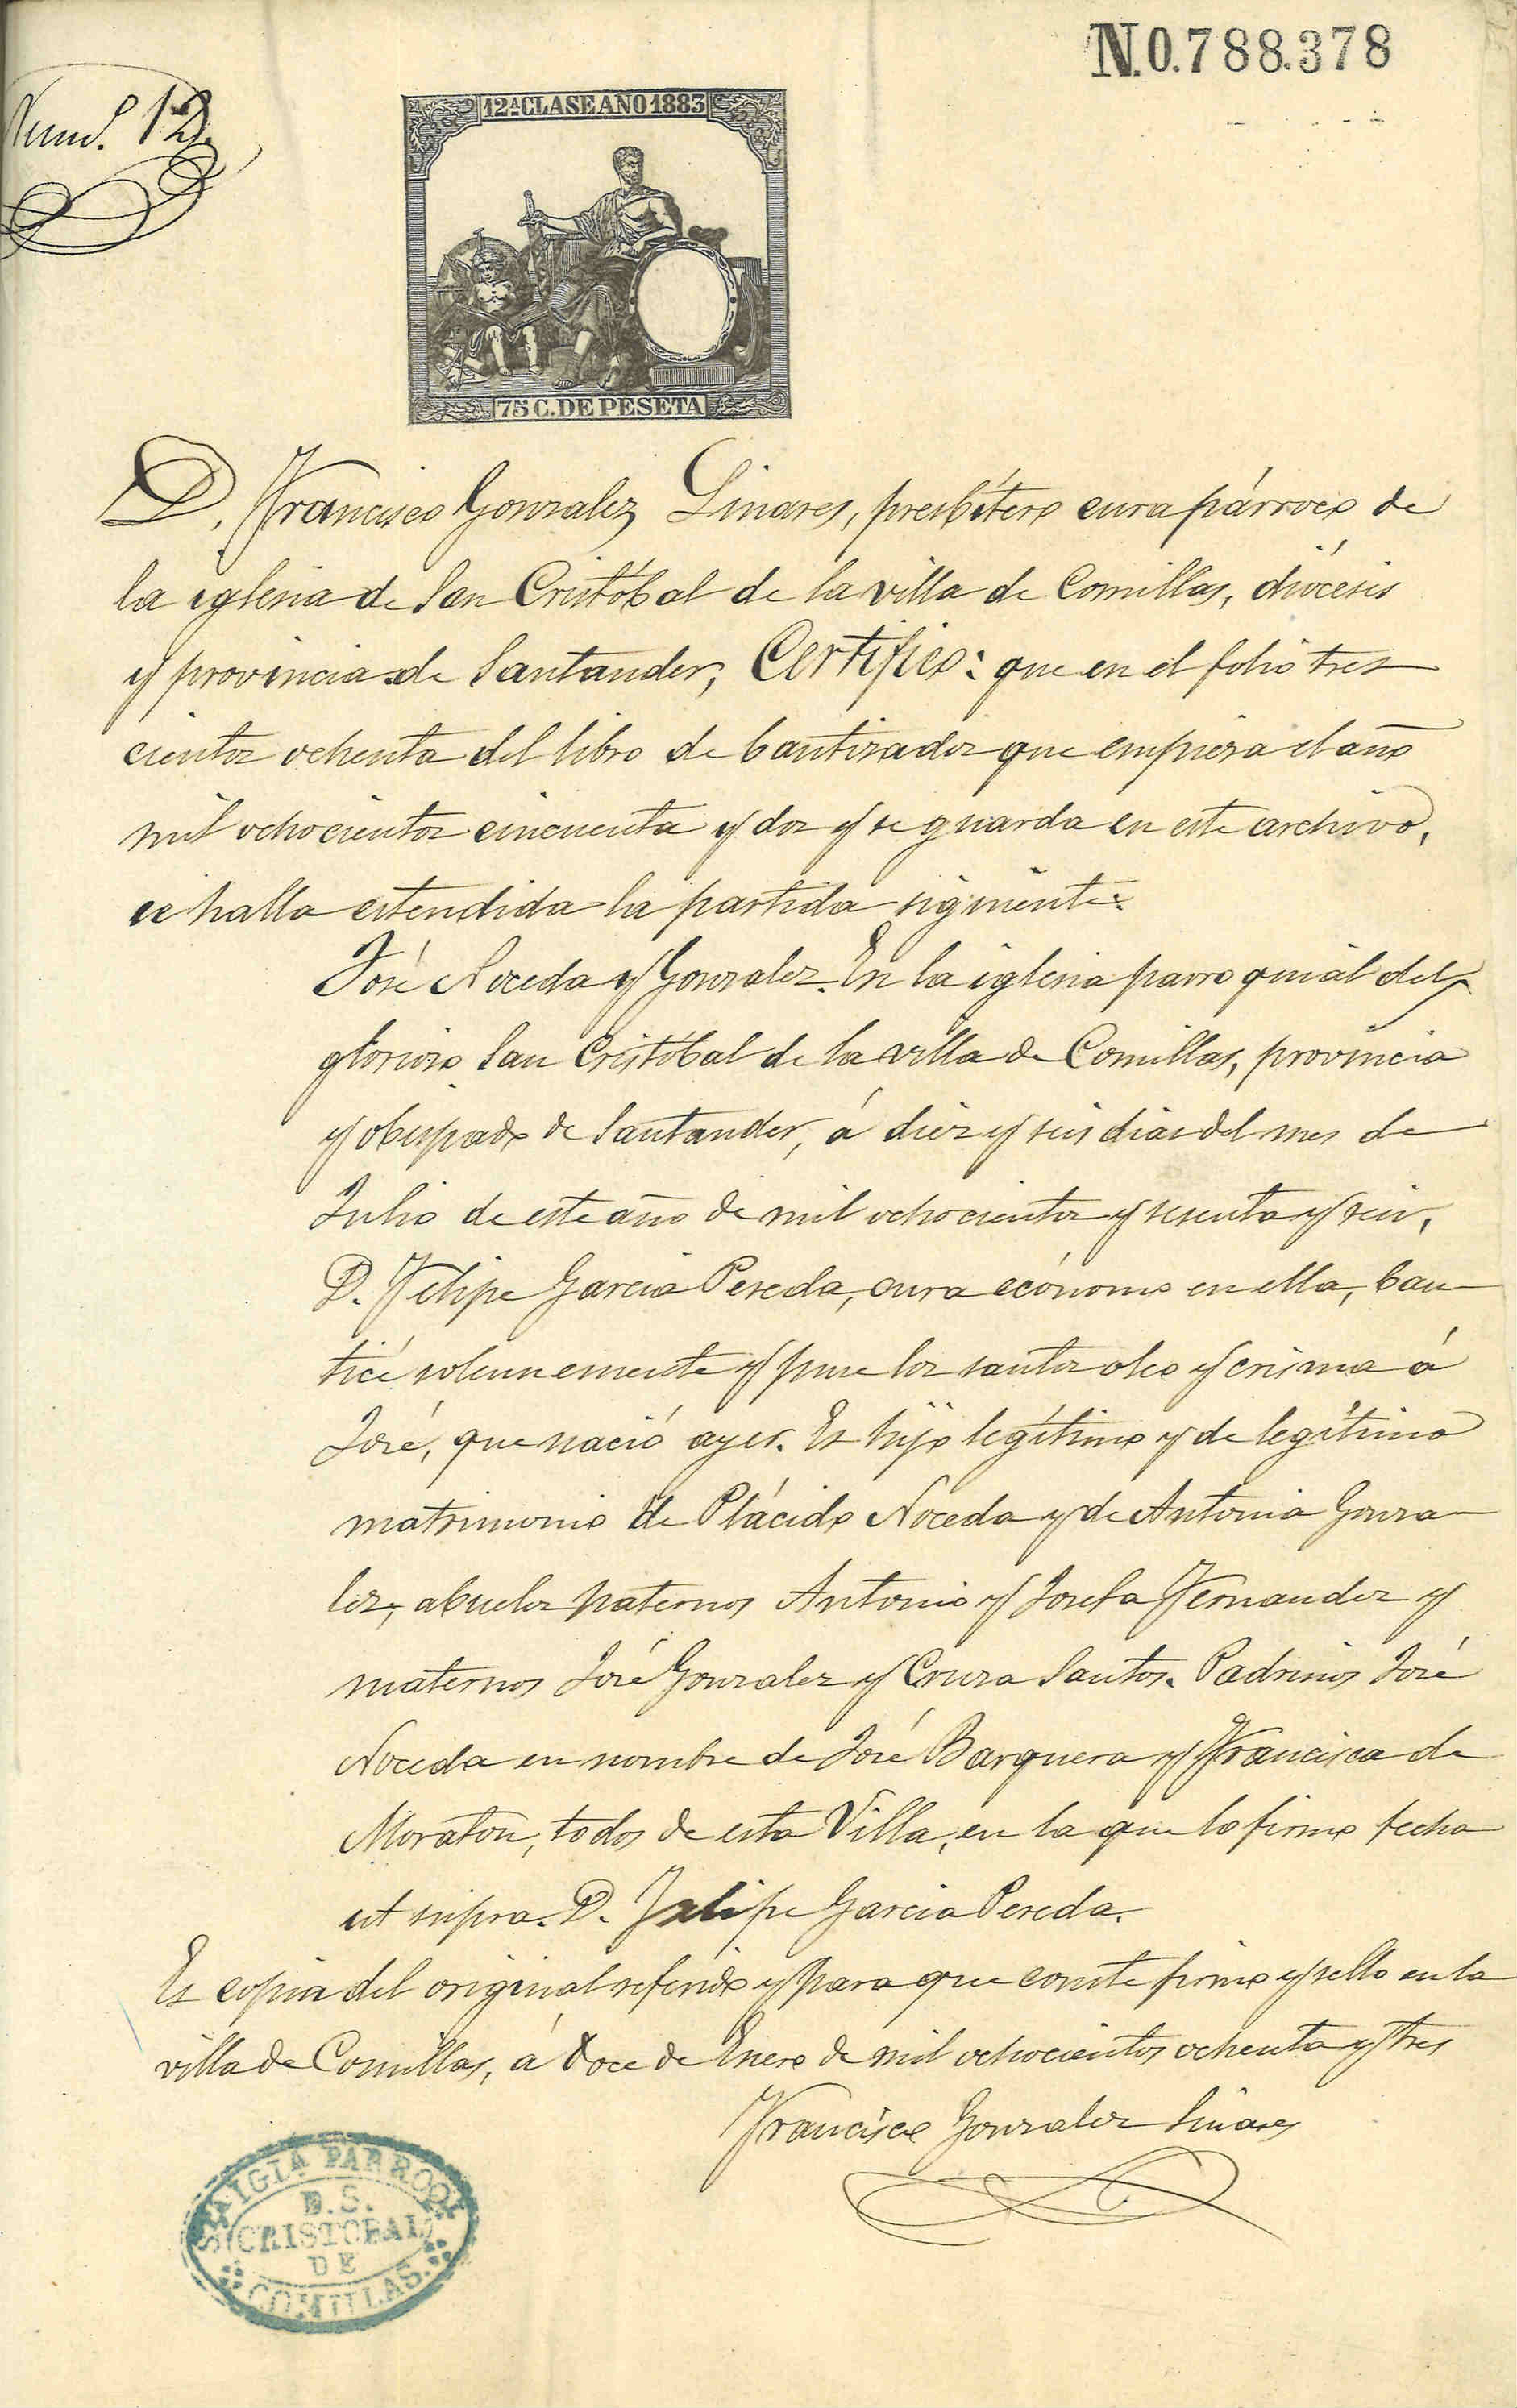 N.0.788.378
Num.º 12.
12ª CLASE AÑO 1883
75 C. DE PESETA
D. Francisco Gonzalez Linares, presbítero cura párroco de
la iglesia de San Cristóbal de la villa de Comillas, diócesis
y provincia de Santander, Certifico: que en el folio tres
cientos ochenta del libro de bautizados que empieza el año
mil ochocientos cincuenta y dos y se guarda en este archivo,
se halla estendida la partida siguiente:
José Noceda y Gonzalez. En la iglesia parroquial del
glorioso San Cristóbal de la villa de Comillas, provincia
y obispado de Santander, á diez y seis dias del mes de
Julio de este año de mil ochocientos y sesenta y seis,
D. Felipe Garcia Pereda, cura ecónomo en ella, bau
ticé solemnemente y puse los santos oleo y crisma á
José, que nació ayer. Es hijo legítimo y de legítimo
matrimonio de Plácido Noceda y de Antonia Gonza
lez, abuelos paternos Antonio y Josefa Fernandez y
maternos José Gonzalez y Santos. Padrinos José
Noceda en nombre de José Barquera y Francisca de
Moraton, todos de esta Villa, en la que lo firmo fecha
ut supra. D. Felipe Garcia Pereda.
Es copia del original referido y para que conste firmo y sello en la
villa de Comillas, á doce de Enero de mil ochocientos ochenta y tres
Francisco Gonzalez Linares
PARROQL
D. S.
CRISTOBAL
DE
COMILLAS.